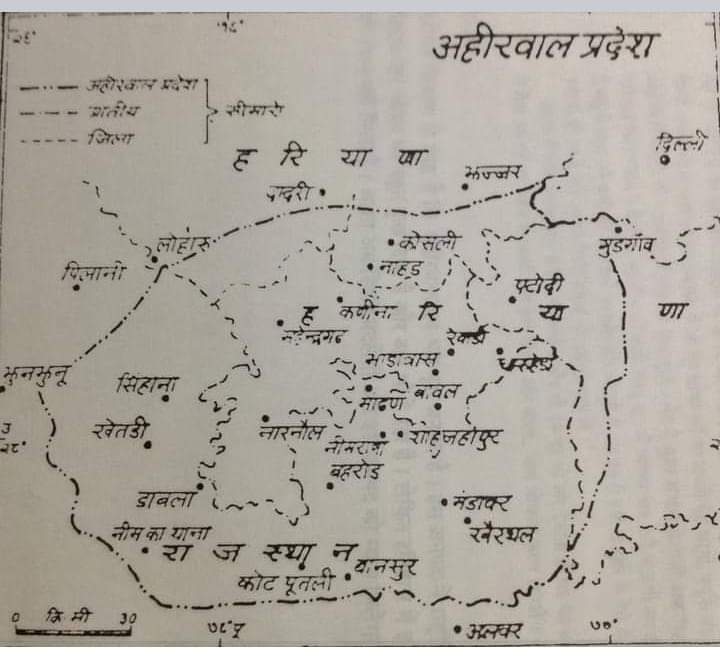 २८°
७६°
अहीरवाल प्रदेश
अहीरवाल प्रदेश
प्रांतीय
जिला
सीमाऐं
ह रि या णा
दिल्ली
झज्जर
दादरी
लोहारु
कोसली
गुडगाँव
नाहड
पिलानी
पटोदी
कणीना
ह रि या णा
महेन्द्रगढ
रेवाडी
धारूहेडा
झुनझुनू
सिंहाना
बावल
माढण
खेतडी
नारनौल
नीमराणा
शाहजहाँपुर
२८°
बहरोड
डाबला
मंडावर
खैरथल
नीम का थाना
रा ज स्था न
बानसुर
कोट पूतली
० कि. मी ३०
७६° पू
७७°
अलवर